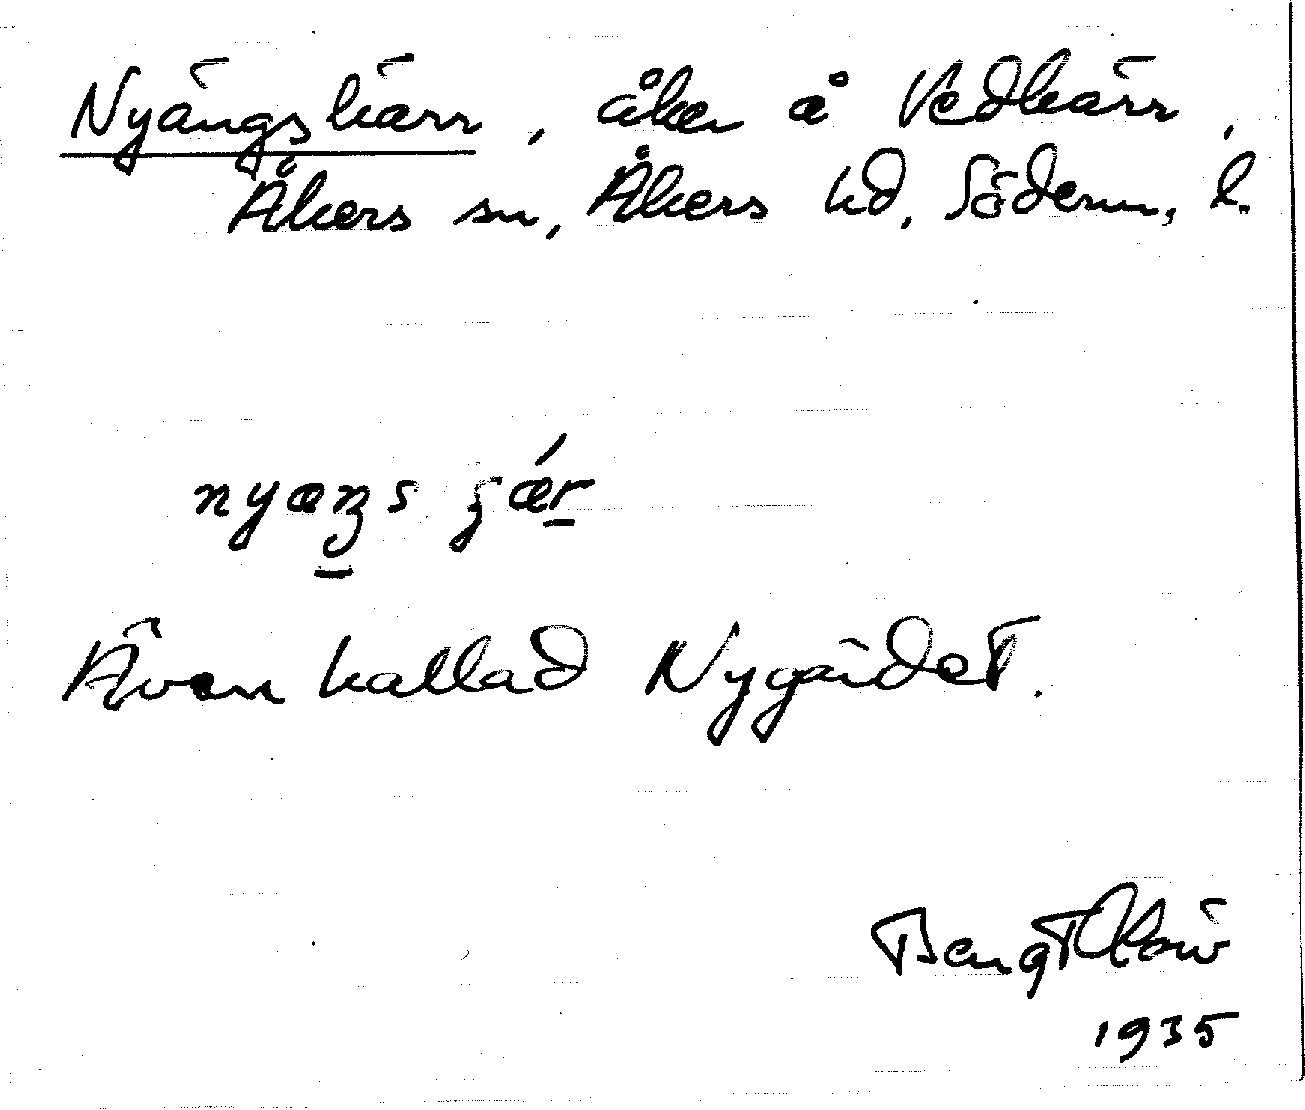 Nyängskärr, åker å Vedkärr,
Åkers sn, Åkers hd, Söderm. l.
nyæŋs
Även kallad Nygärdet.
Bengt
1935